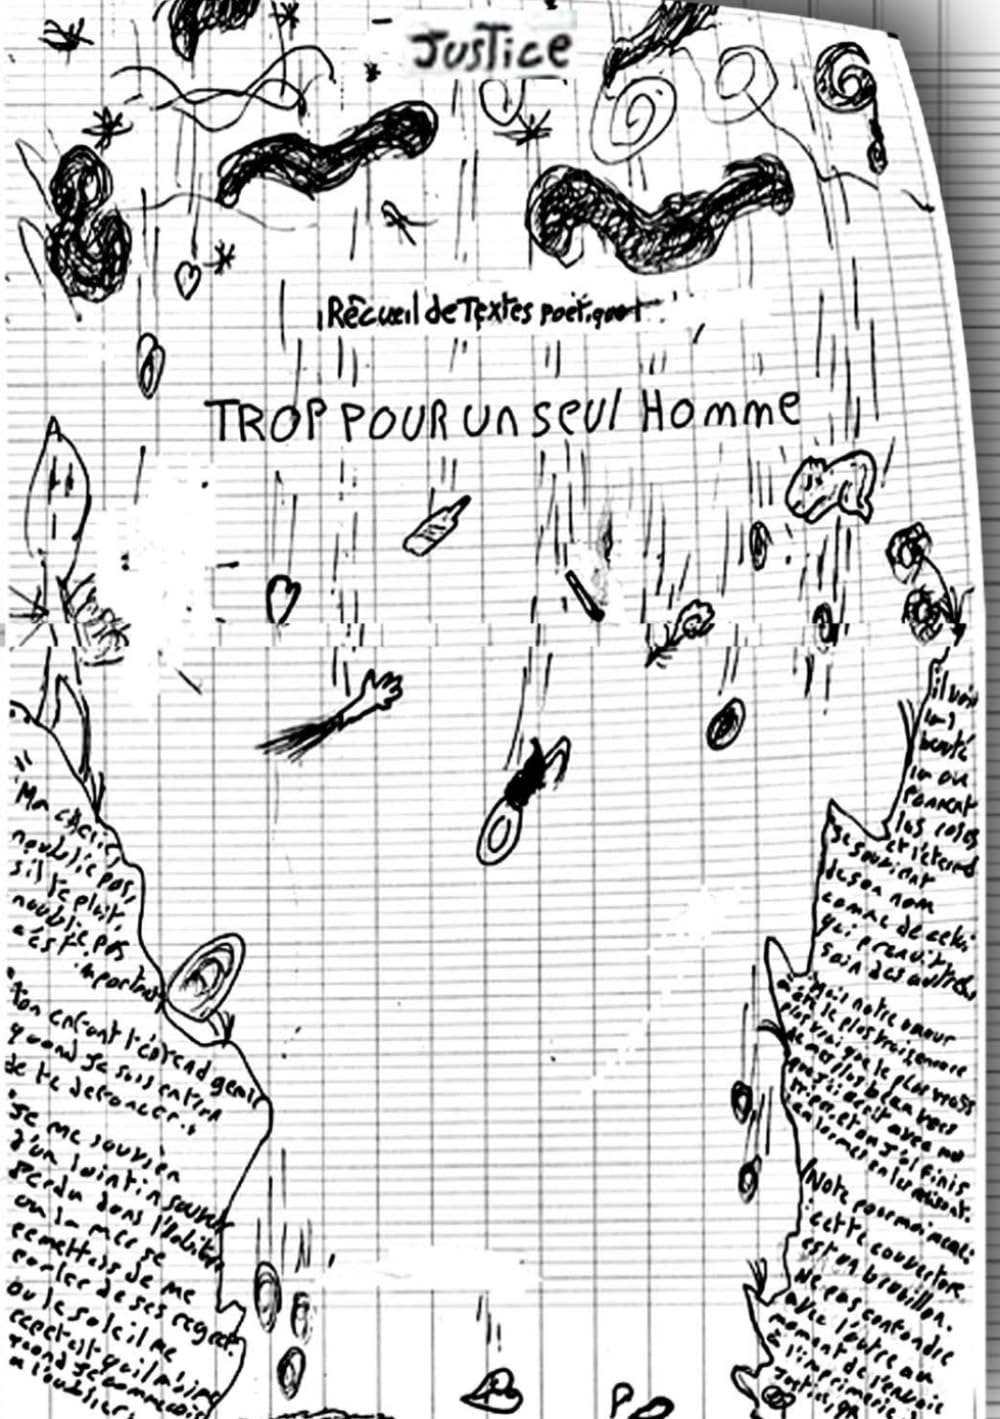 JUSTICE
Récueil de Textes poétiques
TROP POUR un seul Homme
Ma chérie,
n'oublie pas,
s'il te plait,
n'oublie pas
c'est important
Ton enfant t'éprend gémir
quand je suis entrain
de te defoncer.
Je me souvien
d'un lointin souvenir
perdu dans
ou la mer se
remettais de me
parler de ses regret.
ou le soleil me
repetait qu'il
quand je commencais
a l'oublier,
il voit
la
beauté
la ou
fannent
les roses
et l'étend
se souvient
de son nom
comme de celui
qui prendit
soin des autres
Mais notre amour
a été le plus
plus vrai que le plus
de mes plus beau vers
que j'ai écrit avec
et on j'ai finis
en larmes en les lisant.
(Note pour moi meme:
cette couverture
est un brouillon.
Ne pas confondre
avec l'autre au
moment de l'envoie
à l'imprimerie
Justice,